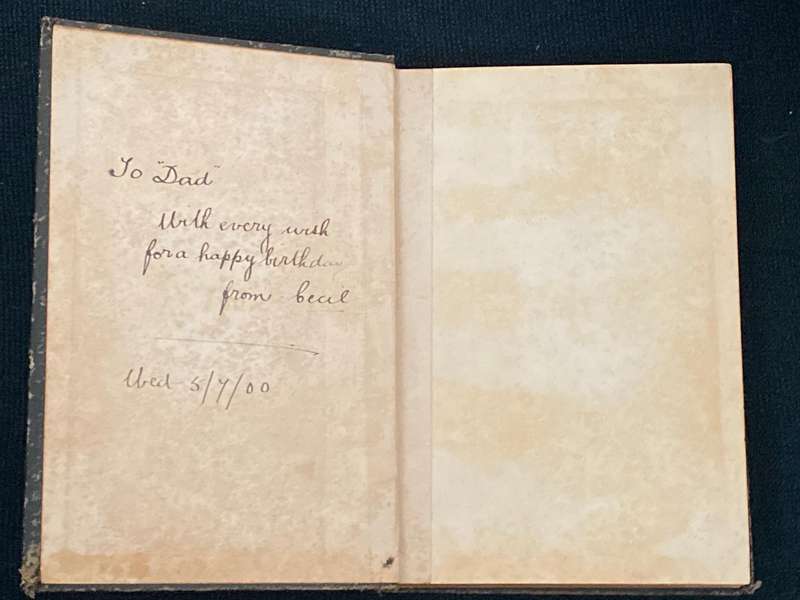 To "Dad"
With every wish
for a happy birthday
from Cecil
Wed 5/7/00